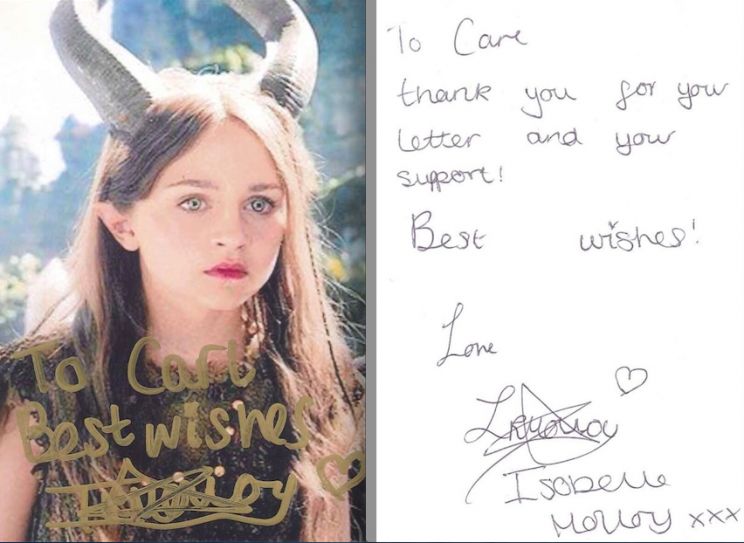 To Carl
Best wishes
To Carl
thank you for your
letter and your
support!
Best wishes!
Love
Isobelle
Molloy xxx